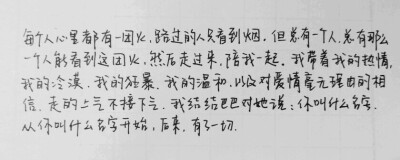 每个人心里都有一团火，路过的人只看到烟。但总有一个人，总有那么
一个人能看到这团火，然后走过来，陪我一起。我带着我的热情，
我的冷漠，我的狂暴，我的温和，以及对爱情毫无理由的相
信，走的上气不接下气。我结结巴巴对她说：你叫什么名字。
从你叫什么名字开始，后来，有了一切。